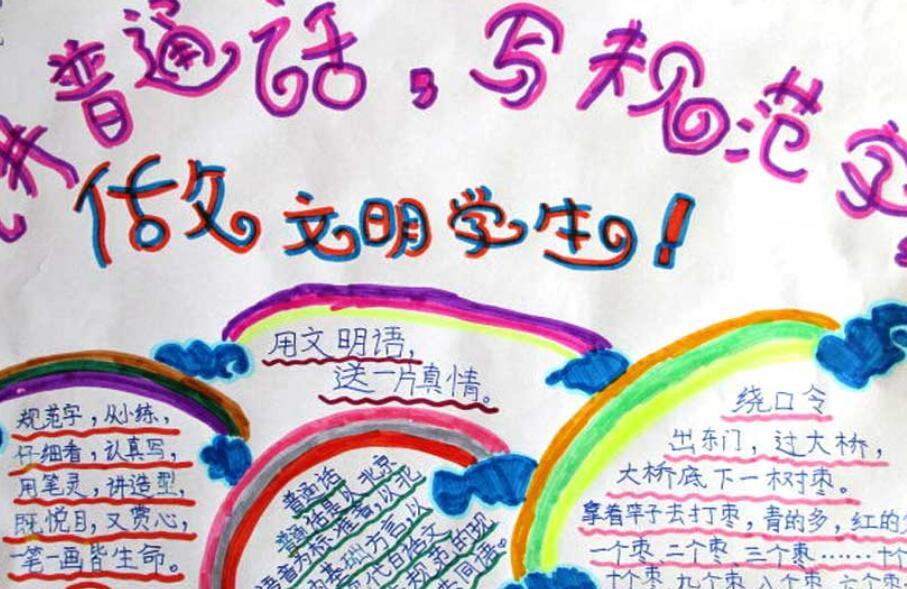 讲普通话，写规范字，
做文明学生！
用文明语，
送一片真情。
规范字，从小练，
仔细看，认真写，
用笔灵，讲造型，
既悦目，又赏心，
一笔一画皆生命。
普通话
普通话是以北京
语音为标准音，以北
方代的话文
规范的现
共同语。
绕口令
出东门，过大桥，
大桥底下一树枣。
拿着竿子去打枣，青的多，红的少
一个枣、二个枣、三个枣……十个
十个枣、九个枣、八个枣、六个枣